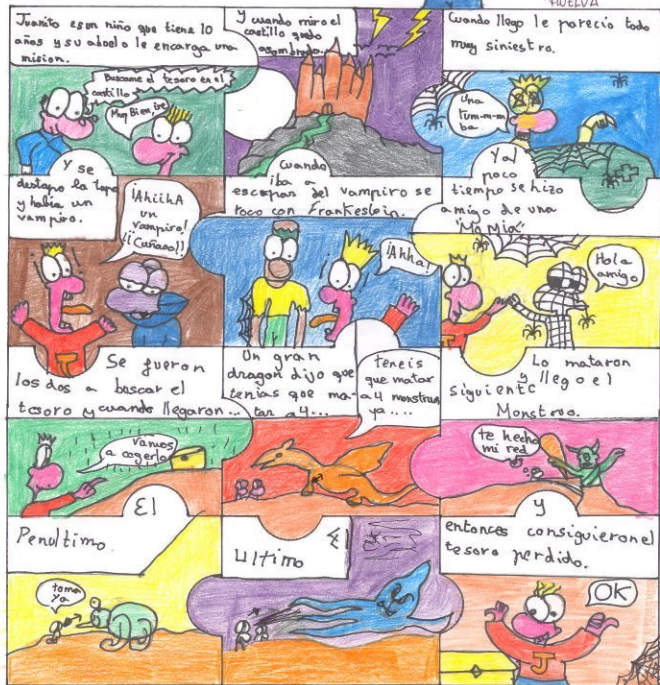 HUELVA
Juanito es un niño que tiene 10
años y su abuelo le encarga una
mision.
Buscame el tesoro en el
castillo
Muy Bien, ire
Y cuando miro el
castillo quedo
asombrado...
Cuando llego le parecio todo
muy siniestro.
Una
tum-m-m
ba
Y se
destapo la tapa
y habia un
vampiro.
¡AhiihA
un
vampiro!
¡¡Cuñaoo!!
Cuando
iba a
escapar del vampiro se
toco con Frankestein.
¡Ahha!
Y al
poco
tiempo se hizo
amigo de una
"MoMia"
Hola
amigo
Se fueron
los dos a buscar el
tesoro y cuando llegaron...
vamos
a cogerlo
Un gran
dragon dijo que
tenias que ma-
tar a 4...
teneis
que matar
a 4 monstruos
ya....
Lo mataron
y llego el
siguiente
Monstruo.
te hecho
mi red
El
Penultimo.
toma
ya
El
Ultimo
Y
entonces consiguieron el
tesoro perdido.
OK
J